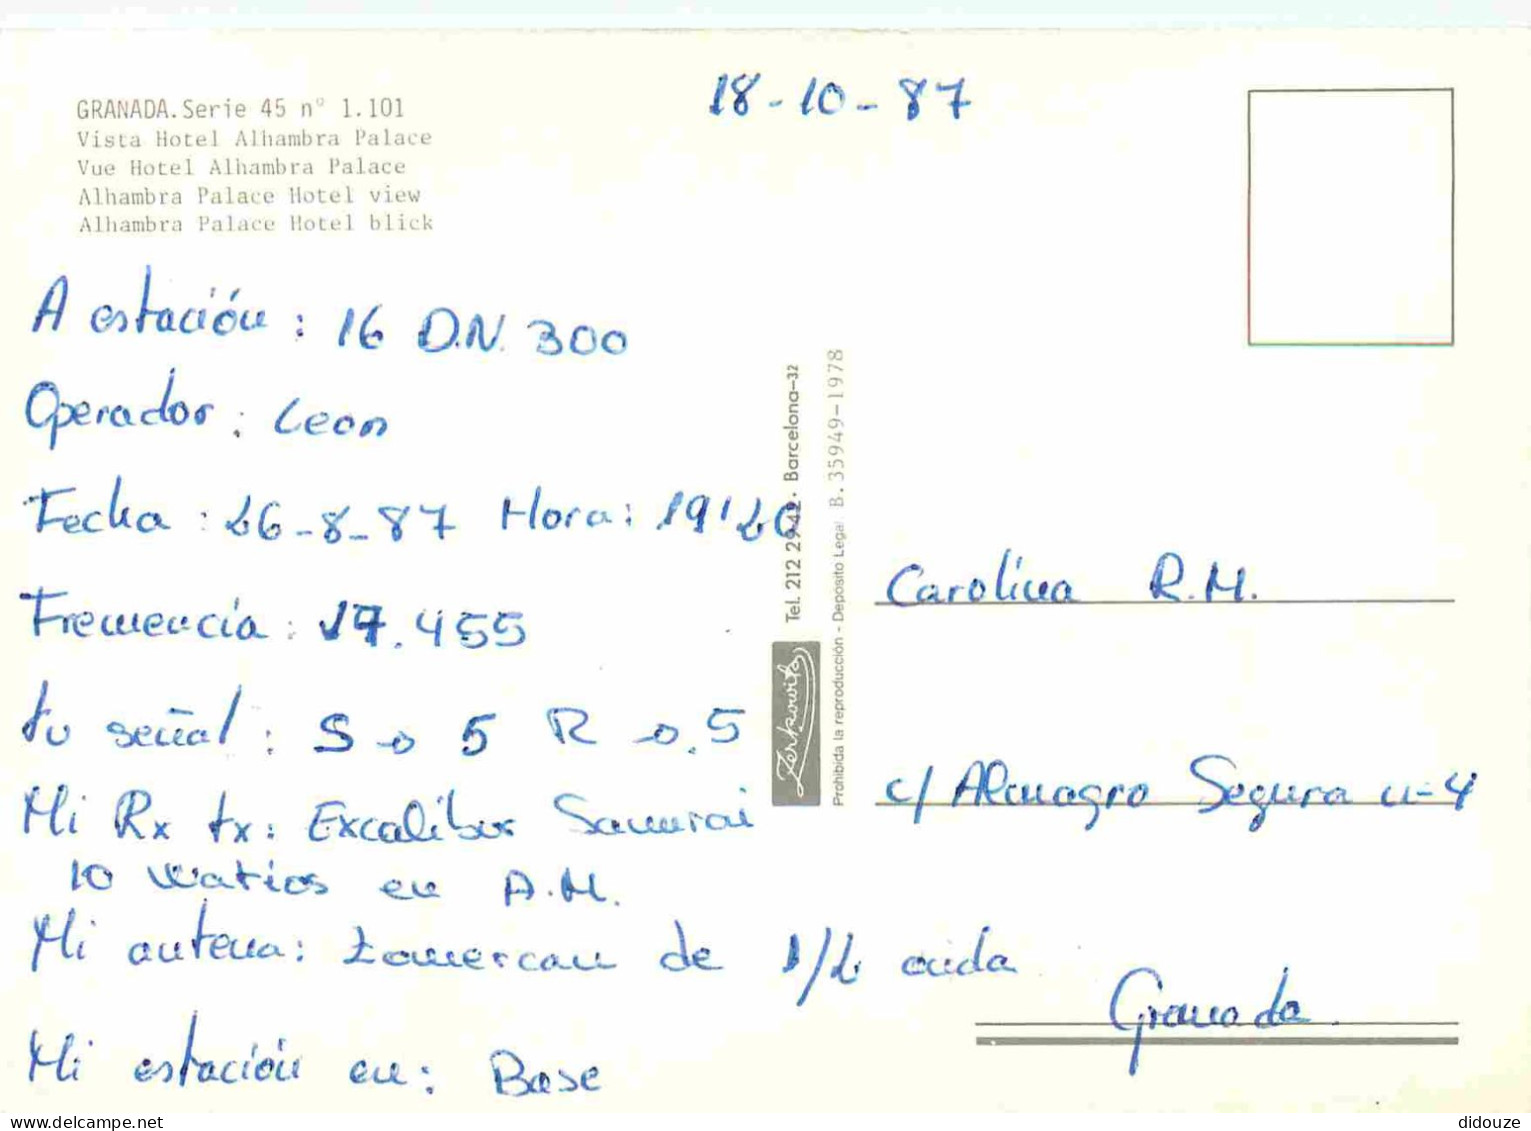 18-10-87
GRANADA.Serie 45 nº 1.101
Vista Hotel Alhambra Palace
Vue Hotel Alhambra Palace
Alhambra Palace Hotel view
Alhambra Palace Hotel blick
A estación: 16 D.N. 300
Operador: Leon
Fecha: 26-8-87 Hora: 19'20
Fremencia: 17.455
tu señal: S-o 5 R -o.5
Mi Rx tx: Excalibur Samurai
10 watios en A.M.
Mi antena: Lamercan de 1/2 onda
Mi estación en: Base
Zerkowitz
Tel. 212 29 42 · Barcelona-32
Prohibida la reproducción - Deposito Legal B. 35949-1978
Carolina R.M.
c/ Almagro Segura n-4
Granada.
didouze